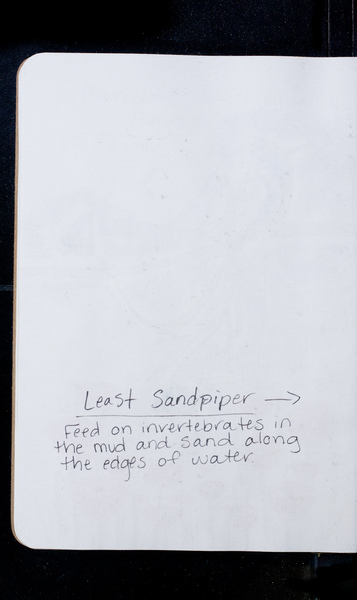 Least Sandpiper →
Feed on invertebrates in
the mud and sand along
the edges of water.